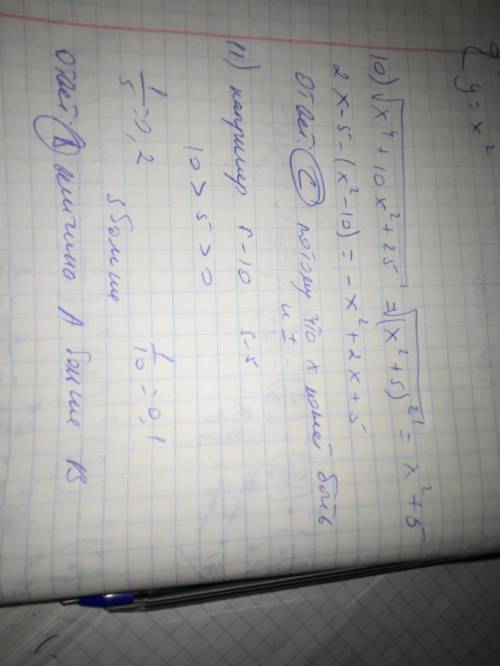 y = x²
10) √(x⁴ + 10x² + 25) = √(x² + 5)² = x² + 5
2x - 5 - (x² - 10) = - x² + 2x + 5
ответ: C потому что x может быть
и ±
11) например 10
10 > 5 > 0
1/5 = 0,2 1/10 = 0,1
больше
ответ: величина A больше B